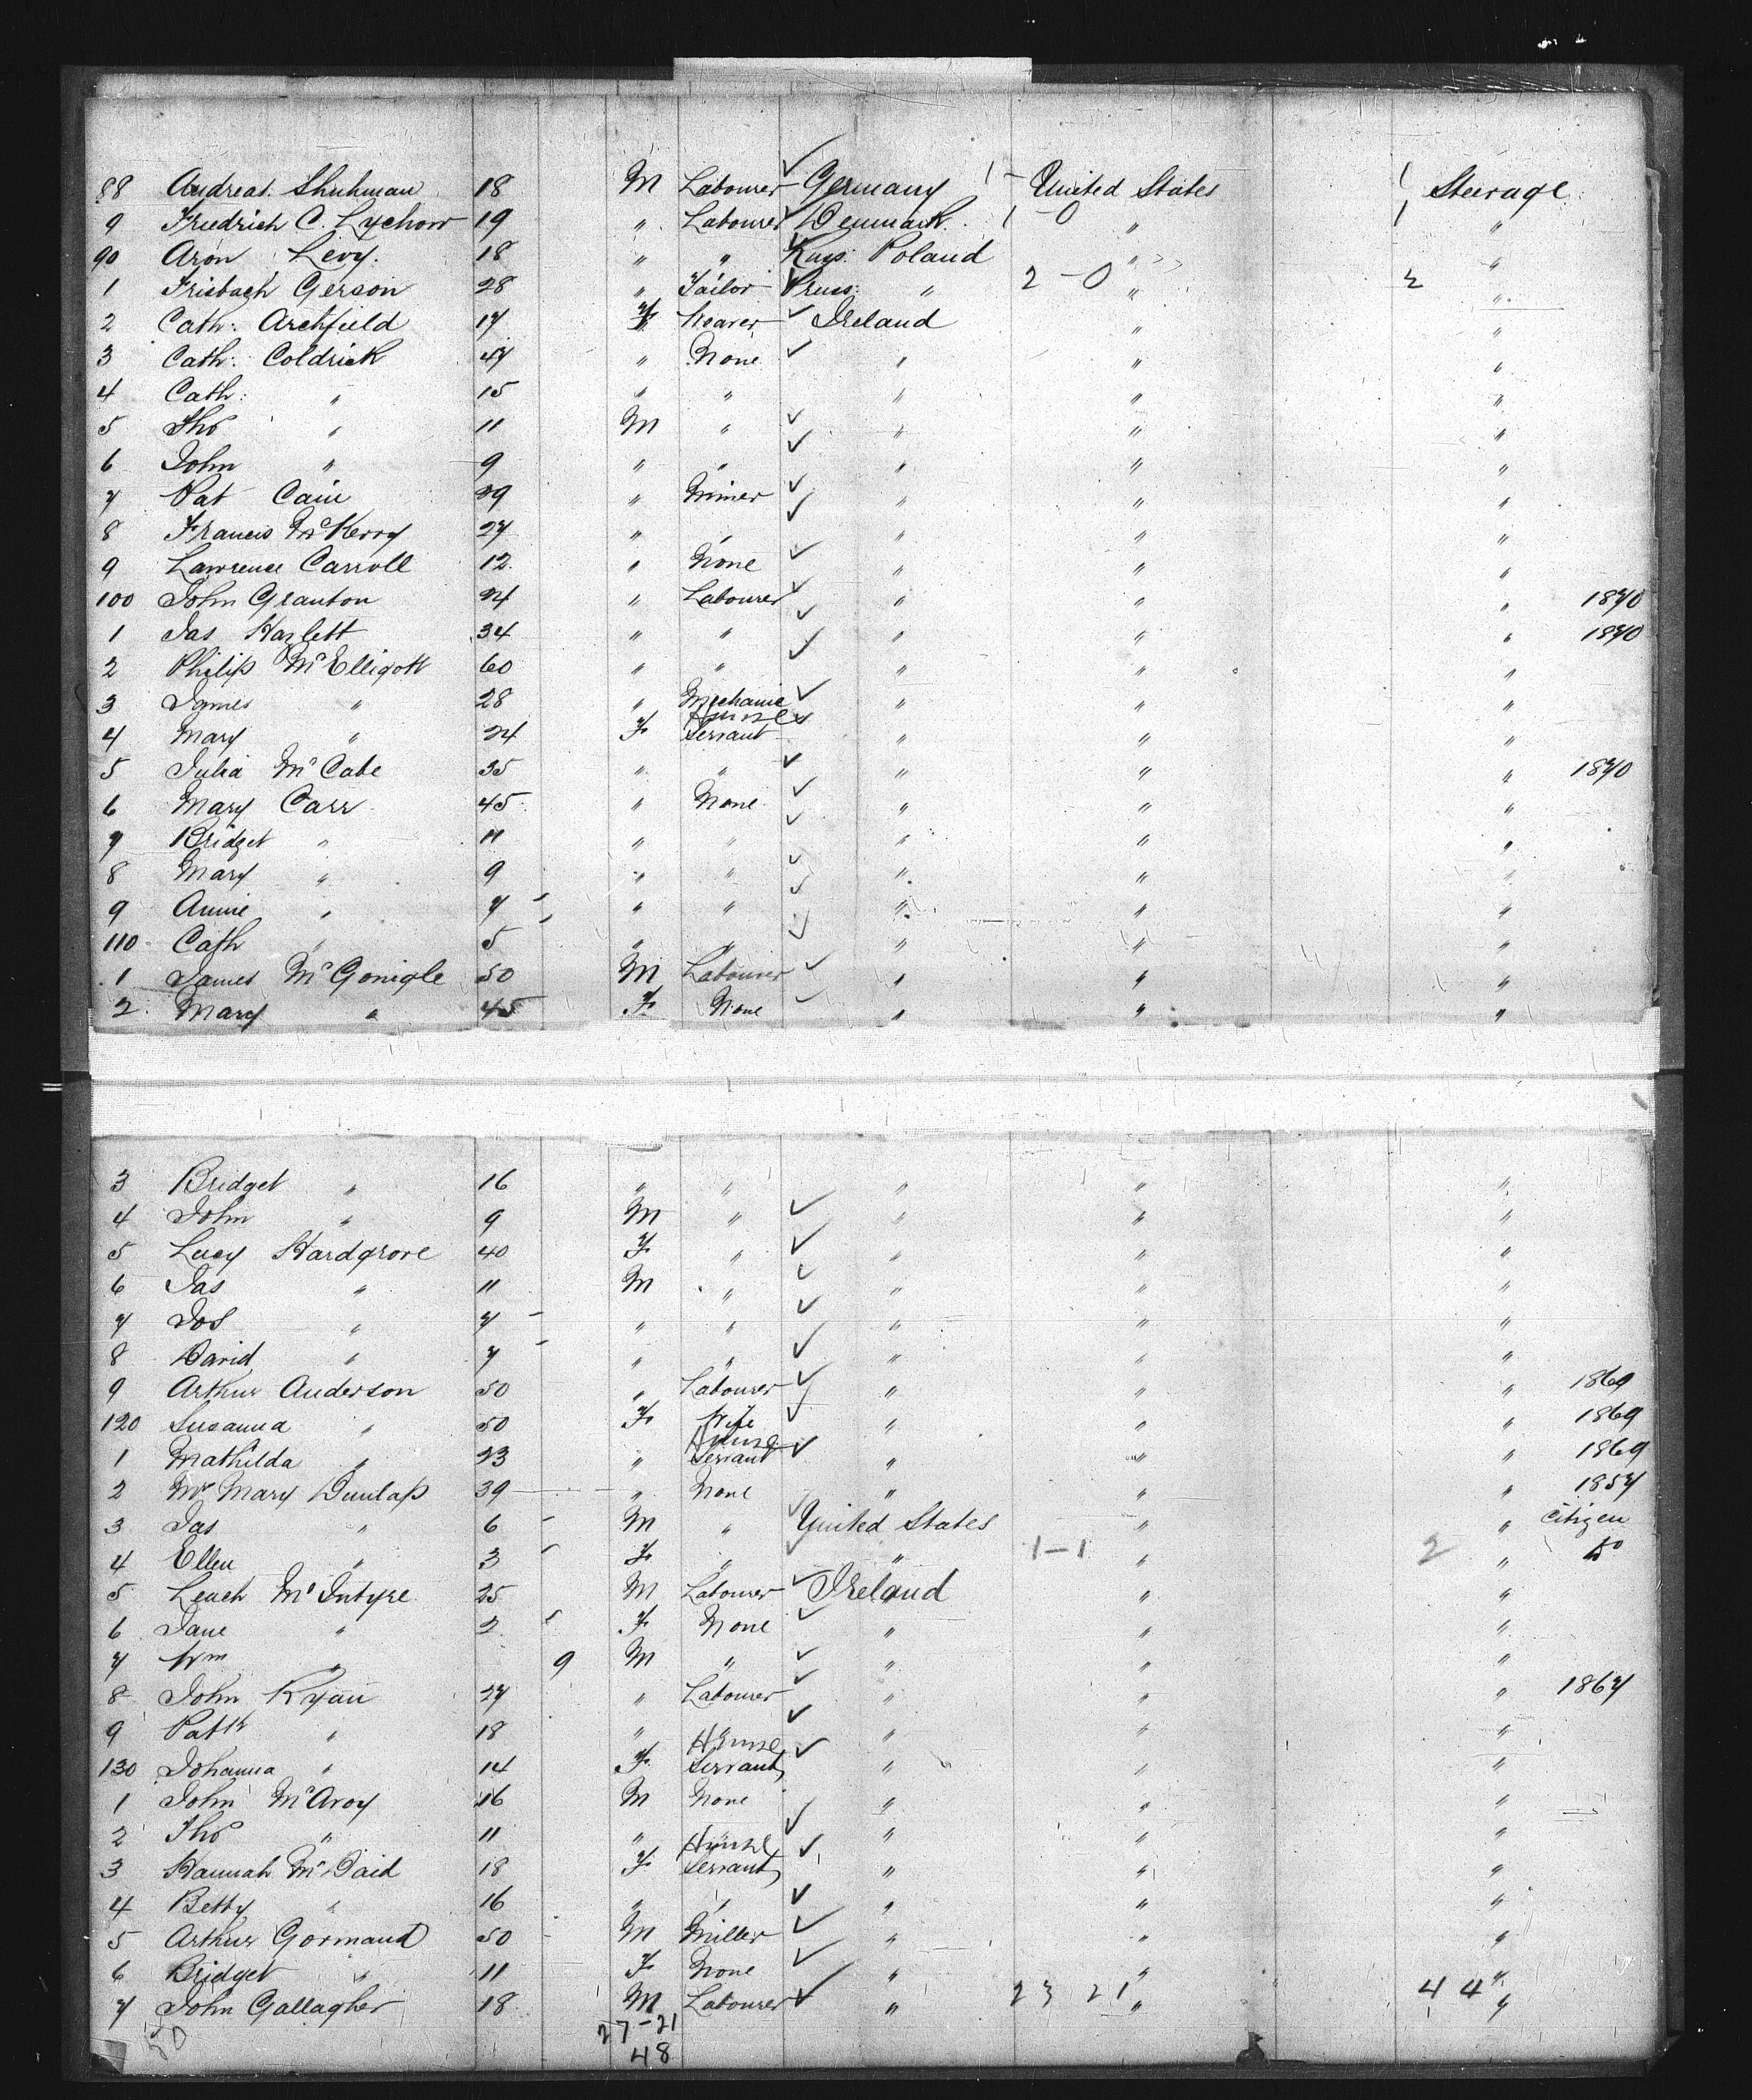 88 Andreas Shuhman 18 M Labourer Germany 1 - United States 1 Steerage
9 Friedrich C. Lychow 19 " Labourer Denmark 1 - 0 " 1 "
90 Aron Levy 18 " " Russ: Poland " "
1 Frisbach Gerson 28 " Tailor Pruss: " 2 - 0 " 2 "
2 Cath: Archfield 17 F Weaver Ireland " "
3 Cath: Coldrick 47 " None " " "
4 Cath: " 15 " " " " "
5 Tho " 11 M " " " "
6 John " 9 " " " " "
7 Pat Cain 39 " Miner " " "
8 Francis McKerry 27 " " " " "
9 Lawrence Carroll 12 " None " " "
100 John Granton 24 " Labourer " " " 1870
1 Jas Hazlett 34 " " " " " 1870
2 Philip McElligott 60 " " " " "
3 James " 28 " Mechanic " " "
4 Mary " 24 F House Servant " " "
5 Julia McCabe 35 " " " " " 1870
6 Mary Carr 45 " None " " "
7 Bridget " 11 " " " " "
8 Mary " 9 " " " " "
9 Annie " 7 " " " " "
110 Cath " 5 " " " " "
1 James McGonigle 50 M Labourer " " "
2 Mary " 45 F None " " "
3 Bridget " 16 " " " " "
4 John " 9 M " " " "
5 Lucy Hardgrove 40 F " " " "
6 Jas " 11 M " " " "
7 Jos " 7 " " " " "
8 David " 7 " " " " "
9 Arthur Anderson 50 " Labourer " " " 1869
120 Susanna " 50 F Wife " " " 1869
1 Mathilda " 23 " House Servant " " " 1869
2 Mrs Mary Dunlap 39 " None " " " 1857
3 Jas " 6 M " United States " " Citizen
4 Ellen " 3 F " " 1-1 " 2 " do
5 Leach McIntyre 25 M Labourer Ireland " "
6 Jane " 2 F None " " "
7 Wm " 9 M " " " "
8 John Ryan 27 " Labourer " " " 1867
9 Patk " 18 " " " " "
130 Johanna " 14 F House Servant " " "
1 John McAvoy 16 M None " " "
2 Tho " 11 " " " " "
3 Hannah McDaid 18 F House Servant " " "
4 Betty " 16 " " " " "
5 Arthur Gormand 50 M Miller " " "
6 Bridget " 11 F None " " "
7 John Gallagher 18 M Labourer " 23 21 " 44 "
50 27-21
48